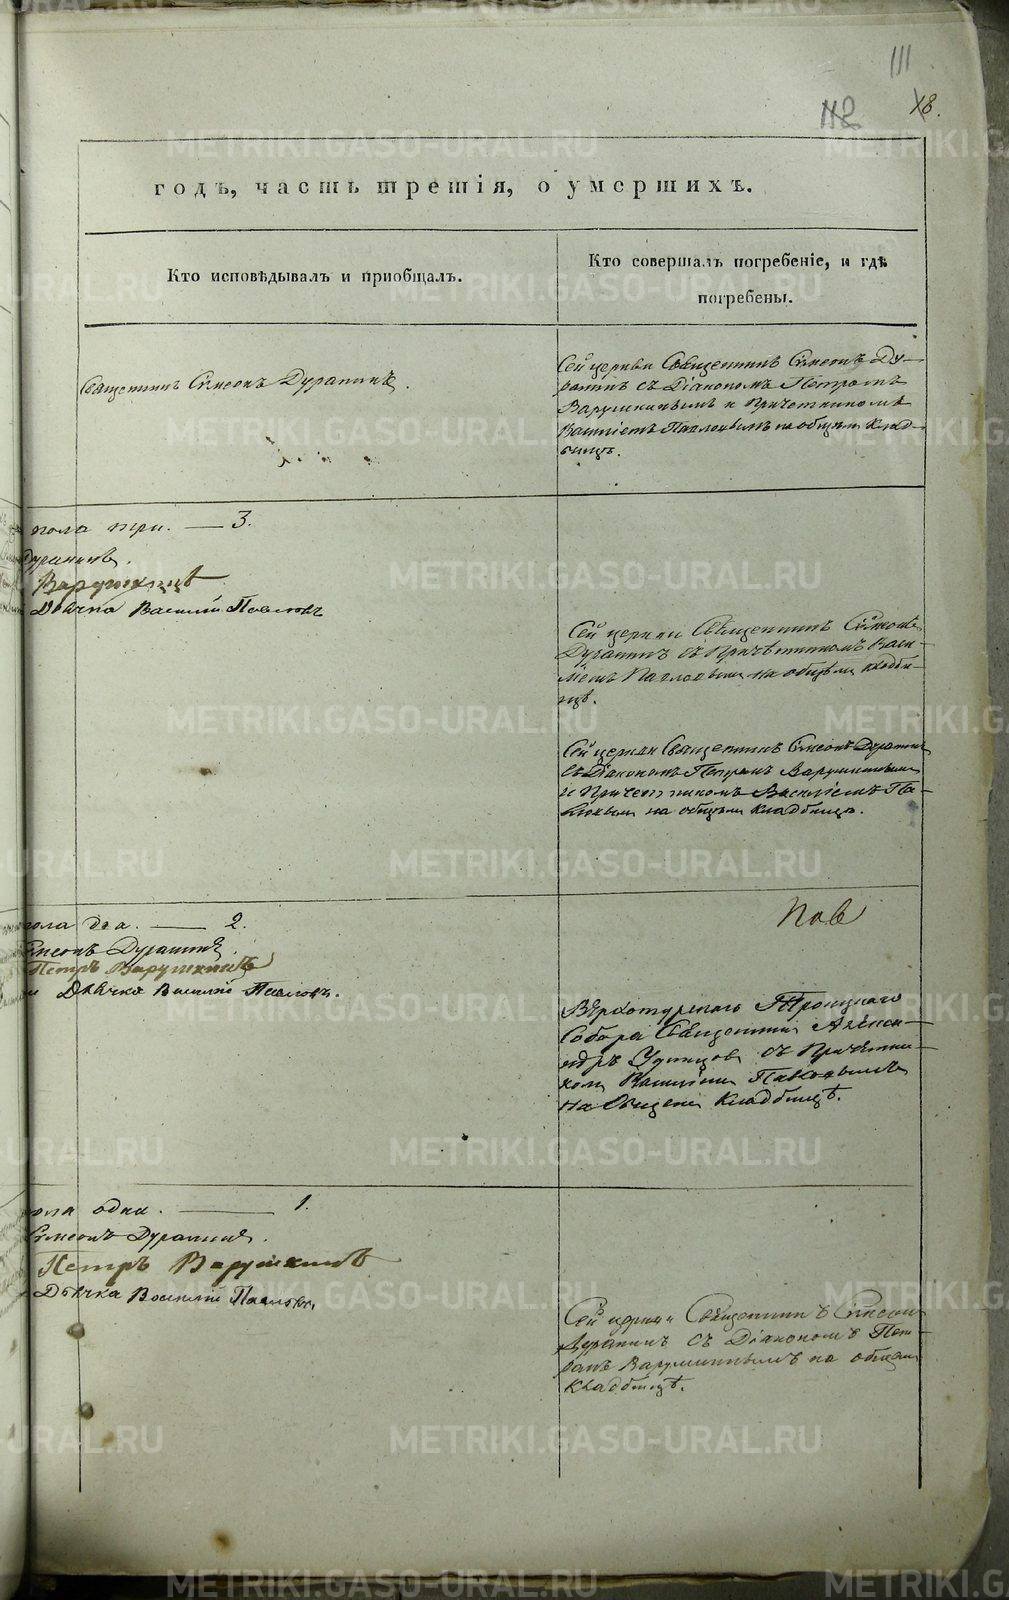 111
112
18.
годъ, часть третія, о умершихъ.
Кто исповѣдывалъ и приобщалъ.
Кто совершалъ погребеніе, и гдѣ
погребены.
Священникъ Симеонъ Дурагинъ.
Сей церкви Священникъ Симеонъ Ду-
рагинъ съ Діакономъ Петромъ
Варушкинымъ и Причетникомъ
Василіемъ Павловымъ на общем клад-
бищѣ.
пола три. — 3.
Дурагинъ.
Варушкинъ
Дьячка Василій Павловъ
Сей церкви Священникъ Симеонъ
Дурагинъ съ Причетникомъ Васи-
ліемъ Павловым на общем кладби-
щѣ.
Сей церкви Священникъ Симеонъ Дурагин
съ Діакономъ Петромъ Варушкиным
и Причетникомъ Василіемъ Па-
вловым на общем кладбищѣ.
пола два. — 2.
Симеонъ Дурагинъ.
Петръ Варушкинъ
Дьячка Василій Павловъ.
Пав
Верхотурскаго Троицкаго
Собора Священник Алекса-
ндръ Удинцов съ Причетни-
ком Василіем Павловымъ
на Общем Кладбищѣ.
пола одна. — 1.
Симеонъ Дурагинъ.
Петръ Варушкинъ
Дьячка Василій Павловъ.
Сей церкви Священникъ Симеон
Дурагинъ съ Діакономъ Пет-
ромъ Варушкинымъ на общем
Кладбищѣ.
METRIKI.GASO-URAL.RU